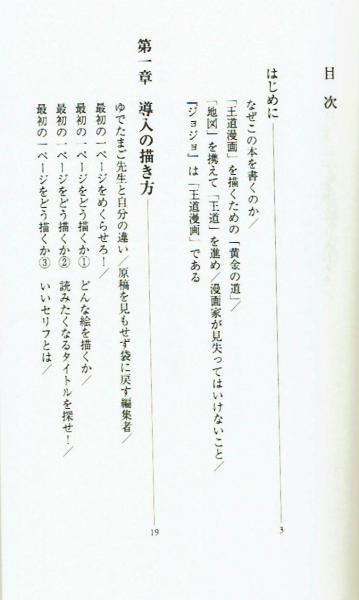 目次
はじめに 3
なぜこの本を書くのか／
「王道漫画」を描くための「黄金の道」／
「地図」を携えて「王道」を進め／漫画家が見失ってはいけないこと／
『ジョジョ』は「王道漫画」である
第一章 導入の描き方 19
ゆでたまご先生と自分の違い／原稿を見もせず袋に戻す編集者／
最初の一ページをめくらせろ！／
最初の一ページをどう描くか① どんな絵を描くか／
最初の一ページをどう描くか② 読みたくなるタイトルを探せ！／
最初の一ページをどう描くか③ いいセリフとは／